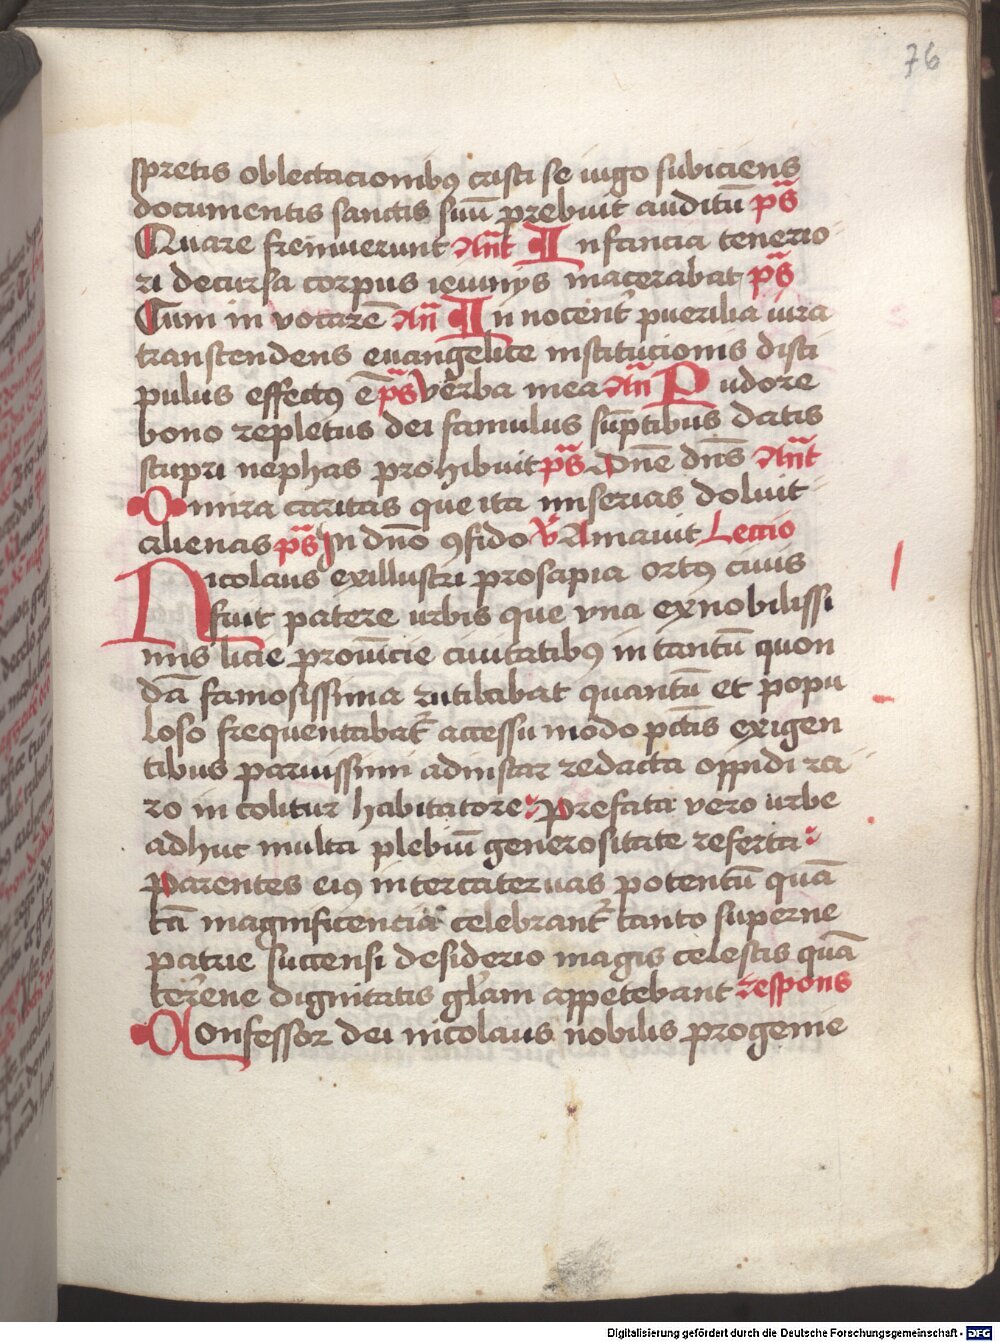 76
spretis oblectacionibꝯ cristi se iugo subiciens
documentis sanctis suū prebuit auditū ps̄
Quare fremuerunt Ant̄ Infancia tenerio
ri decursa corpus ieiunijs macerabat ps̄
Cum in vocarē An̄ In nocent͛ puerilia iura
transcendens euangelice institucionis disci
pulus effectꝯ ē ps̄ verba mea An̄ Pudore
bono repletus dei famulus sūptibus datis
stupri nephas prohibuit ps̄ Dn̄e dn̄s Ant̄
O mira caritas que ita miserias doluit
alienas ps̄ In dn̄o ꝯfido v̄ Amauit Lectio
Nicolaus exillustri prosapia ortꝯ ciuis
fuit patere urbis que vna exnobilissi
mis licie prouīcie ciuitatibꝯ in tantū quon
dā famosissima rutilabat quantū et popu
loso frequentabat͛ accessu modo pctīs exigen
tibus paruissimi adinstar redacta oppidi ra
ro in colitur habitatore prefata vero urbe
adhuc multa plebiū generositate referta
Parentes eiꝯ intercateruas potentū quā
tā magnificencia celebrant͛ tanto superne
patrie succensi desiderio magis celestis quā
terrene dignitatis glām appetebant respons
Confessor dei nicolaus nobilis progenie
Digitalisierung gefördert durch die Deutsche Forschungsgemeinschaft - DFG